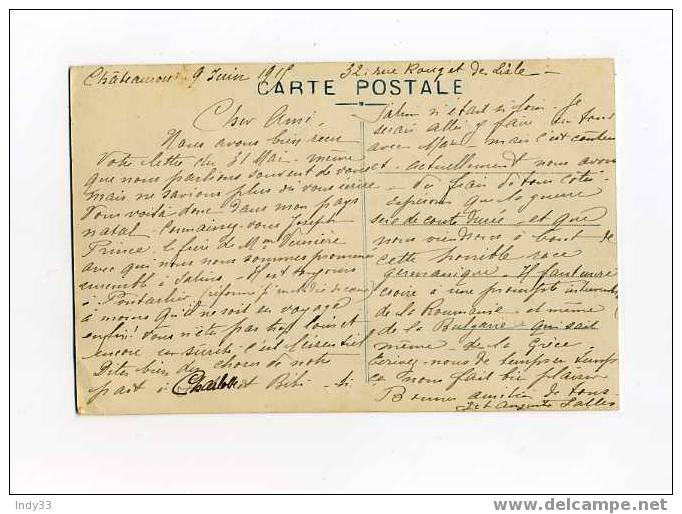 Châteauroux 9 Juin 1915 32, rue Rouget de Lisle -
CARTE POSTALE
Cher Ami,
Nous avons bien reçu
votre lettre du 31 Mai - même
que nous parlions souvent de vous
mais ne savions plus où vous écrire
Vous voilà donc dans mon pays
natal - Connaissez-vous Joseph
Prince, le fils de Mme
avec qui nous nous sommes promenés
ensemble à Salins - Il est toujours
à Pontarlier, réformé pr maladie de cœur
à moins qu'il ne soit en voyage
enfin! Vous n'êtes pas trop loin et
encore en sûreté c'est l'essentiel
Dites bien des choses de notre
part à Charlotte et Bébé - Si
Salins n'était si loin - Je
serais allée y faire un tour
avec Max, mais c'est coûteux
et actuellement nous avons
du frais de tous côtés
espérons que la guerre
sera de courte durée - et que
nous viendrons à bout de
cette horrible race
germanique - Il faut encore
croire à une prompte intervention
de la Roumanie - et même
de la Bulgarie - qui sait
même de la Grèce -
Ecrivez-nous de temps en temps
ça nous fait bien plaisir
Bonnes amitiés de tous
Auguste Salles
Indy33
www.delcampe.net